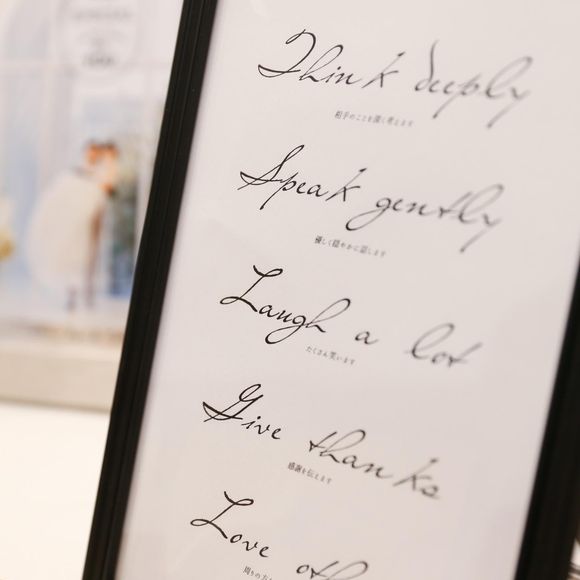 Think deeply
相手のことを深く考えます
Speak gently
優しく穏やかに話します
Laugh a lot
たくさん笑います
Give thanks
感謝を伝えます
Love
周りの